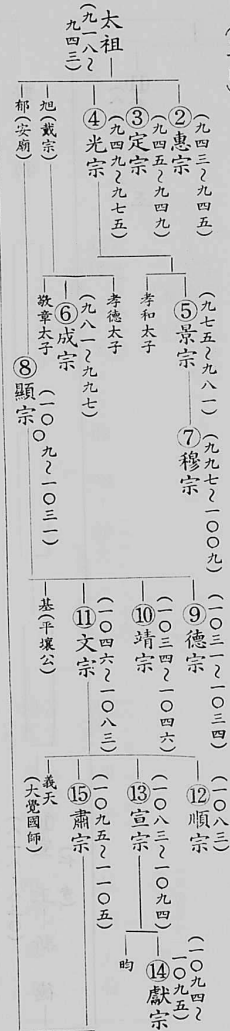 太祖
(九一八~
九四三)
②惠宗
(九四三~九四五)
③定宗
(九四五~九四九)
④光宗
(九四九~九七五)
旭(戴宗)
郁(安廟)
⑤景宗
(九七五~九八一)
孝和太子
孝德太子
⑥成宗
(九八一~九九七)
敬章太子
⑦穆宗
(九九七~一〇〇九)
⑧顯宗
(一〇〇九~一〇三一)
⑨德宗
(一〇三一~一〇三四)
⑩靖宗
(一〇三四~一〇四六)
⑪文宗
(一〇四六~一〇八三)
基(平壤公)
⑫順宗
(一〇八三)
⑬宣宗
(一〇八三~一〇九四)
⑮肅宗
(一〇九五~一一〇五)
義天
(大覺國師)
⑭獻宗
(一〇九四~
一〇九五)
昀